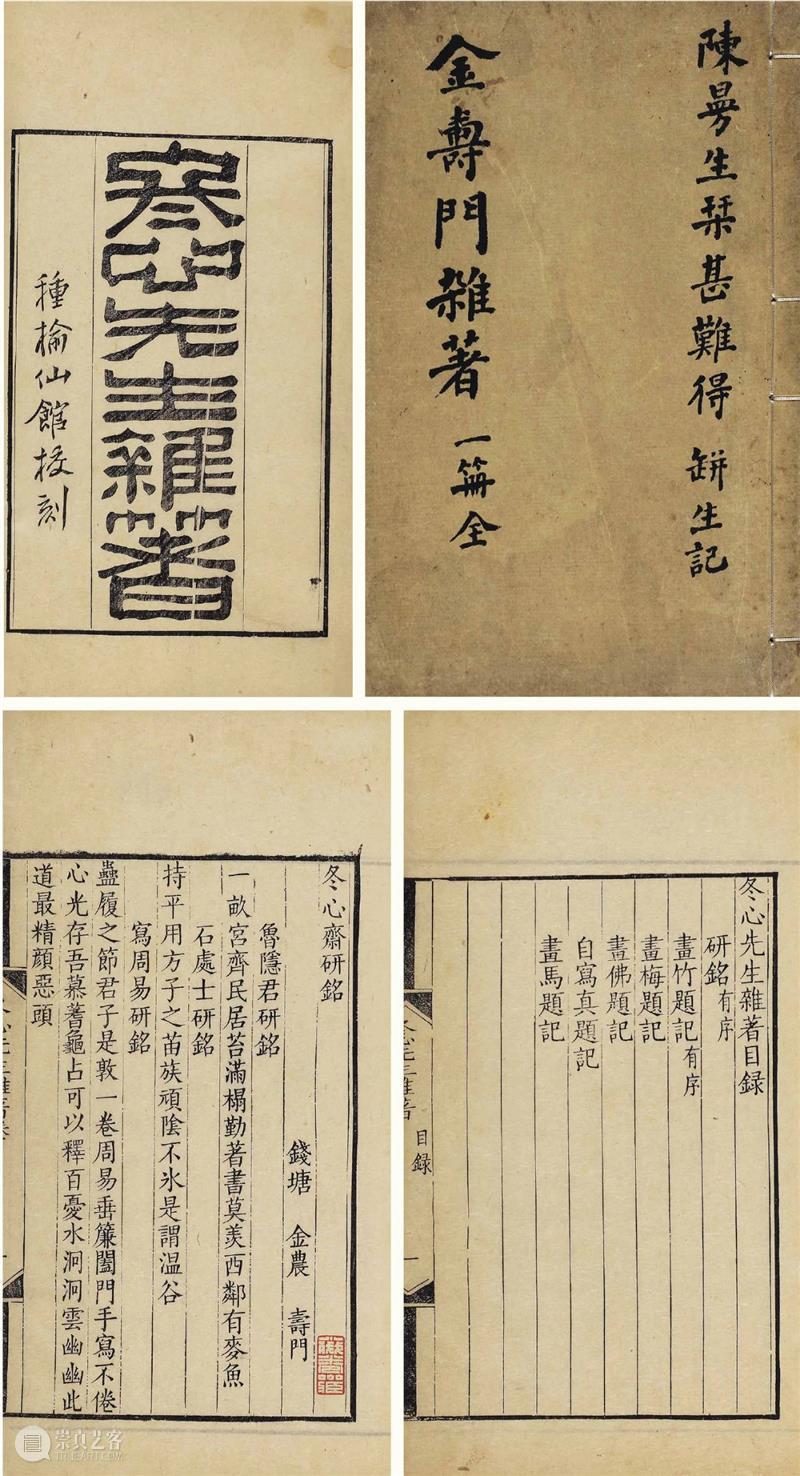 冬心先生雜著
種榆仙館校刻
陳曼生栞甚難得 缾生記
金壽門雜著 一笧全
冬心齋研銘
錢塘 金農 壽門
魯隱君研銘
一畝宮齊民居苔滿榻勤著書莫羨西鄰有麥魚
石處士研銘
持平用方子之苗族頑陰不氷是謂溫谷
寫周易研銘
蠱履之節君子是敦一卷周易垂簾闔門手寫不倦
心光存吾慕蓍龜占可以釋百憂水泂泂雲幽幽此
道最精顔惡頭
冬心先生雜著目録
研銘有序
畫竹題記有序
畫梅題記
畫佛題記
自寫真題記
畫馬題記
目録
一
崇真艺客